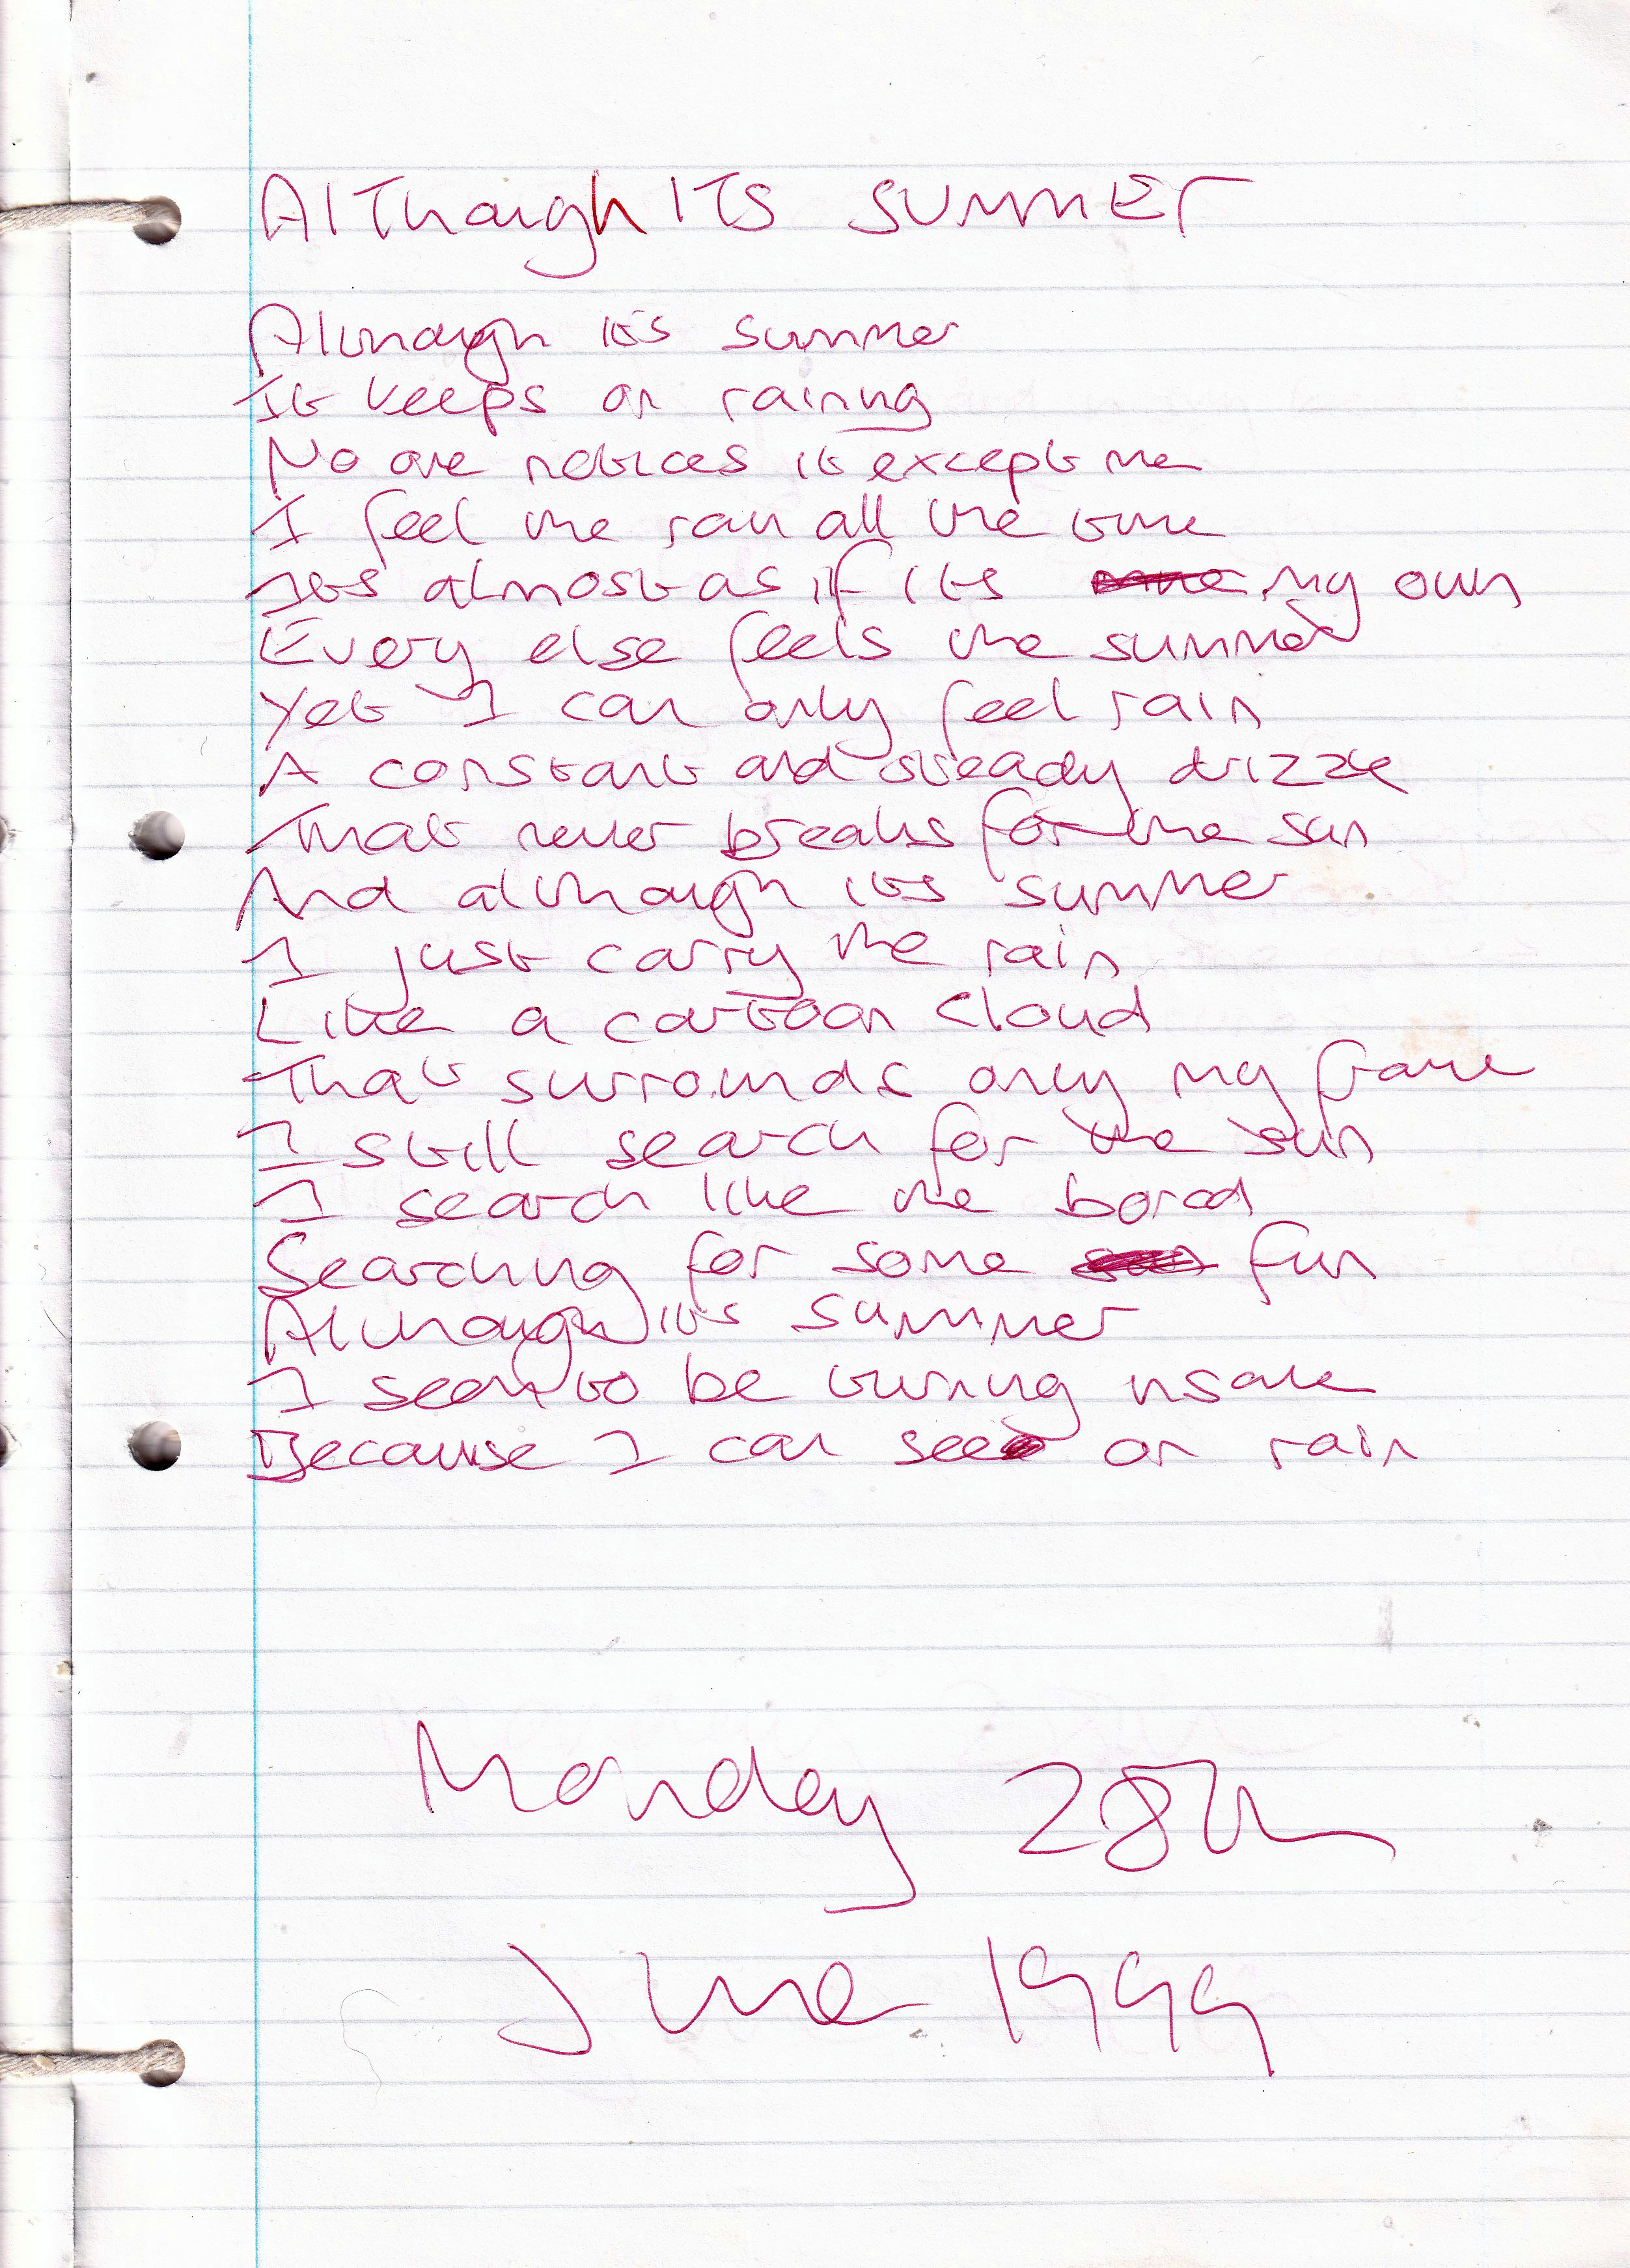 AlThough ITS SUMMER
Although its summer
It keeps on raining
No one notices it except me
I feel the rain all the time
Its almost as if its my own
Every else feels the summer
Yet I can only feel rain
A constant and steady drizzle
That never breaks for the sun
And although its summer
I just carry the rain
Like a cartoon cloud
That surrounds only my frame
I still search for the sun
I search like the bored
Searching for some fun
Although its summer
I seem to be turning insane
Because I can see on rain
Monday 28th
June 1999